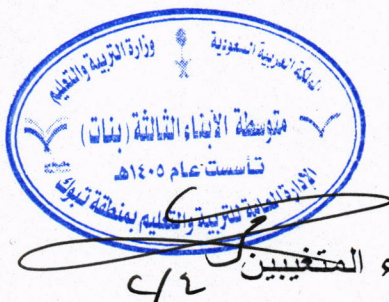 المملكة العربية السعودية
وزارة التربية والتعليم
متوسطة الأبناء الثالثة (بنات)
تأسست عام ١٤٠٥هـ
الإدارة العامة للتربية والتعليم بمنطقة تبوك
المتغيبين
٢/٤